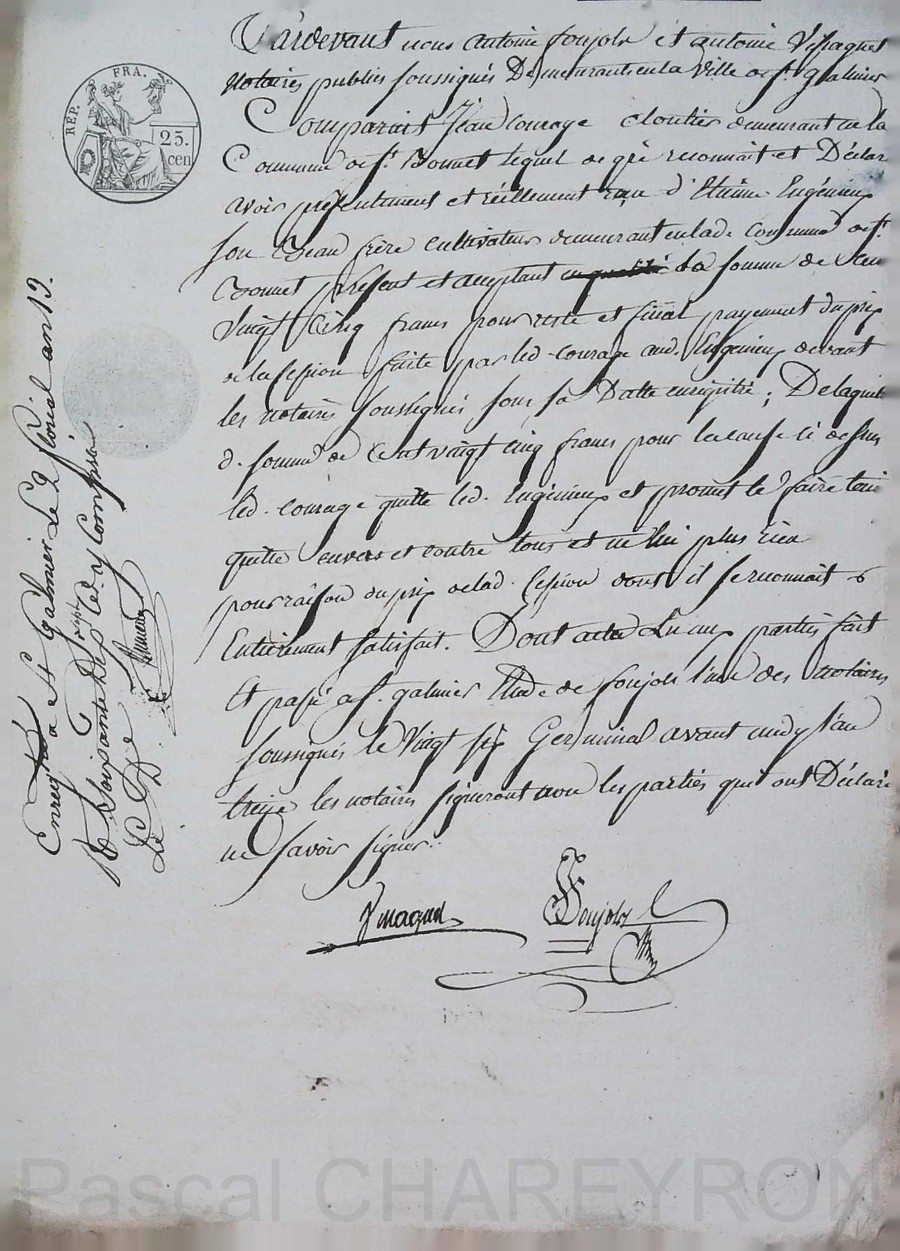 Pardevant nous Antoine Soujols et antoine
Notaires publics soussignés Demeurants en la Ville de St. galmier
Comparait Jean Courage cloutier demeurant en la
Commune de St. Bonnet lequel de gré reconnait et Déclare
avoir présentement et réellement reçu d'Etienne Engénieux
son Beau frère cultivateur demeurant en lade. commune de St.
Bonnet présent et acceptant la somme de Cent
Vingt Cinq francs pour reste et final payement du prix
de la Cession faite par led. courage aud. Engénieux devant
les notaires soussignés sous sa Datte enregistré ; De laquelle
d. somme de Cent vingt cinq francs pour la cause ci dessus
led. courage quitte led. Engénieux et promet le faire tenir
quitte envers et contre tous et ne lui plus rien
pour raison du prix de lad. Cession dont il se reconnait
Entièrement Satisfait. Dont acte aux parties fait
Et passé a St. galmier Etude de Soujols l'un des notaires
soussignés le Vingt six Germinal avant midy l'an
treize les notaires signeront non les parties qui ont Déclaré
ne savoir signer.
Soujols
RÉP. FRA.
25.
cen
Enregtré a St Galmier Le 9 floréal an 13.
R Soixante Dix sept Ces y Compris
Le De
Pascal CHAREYRON